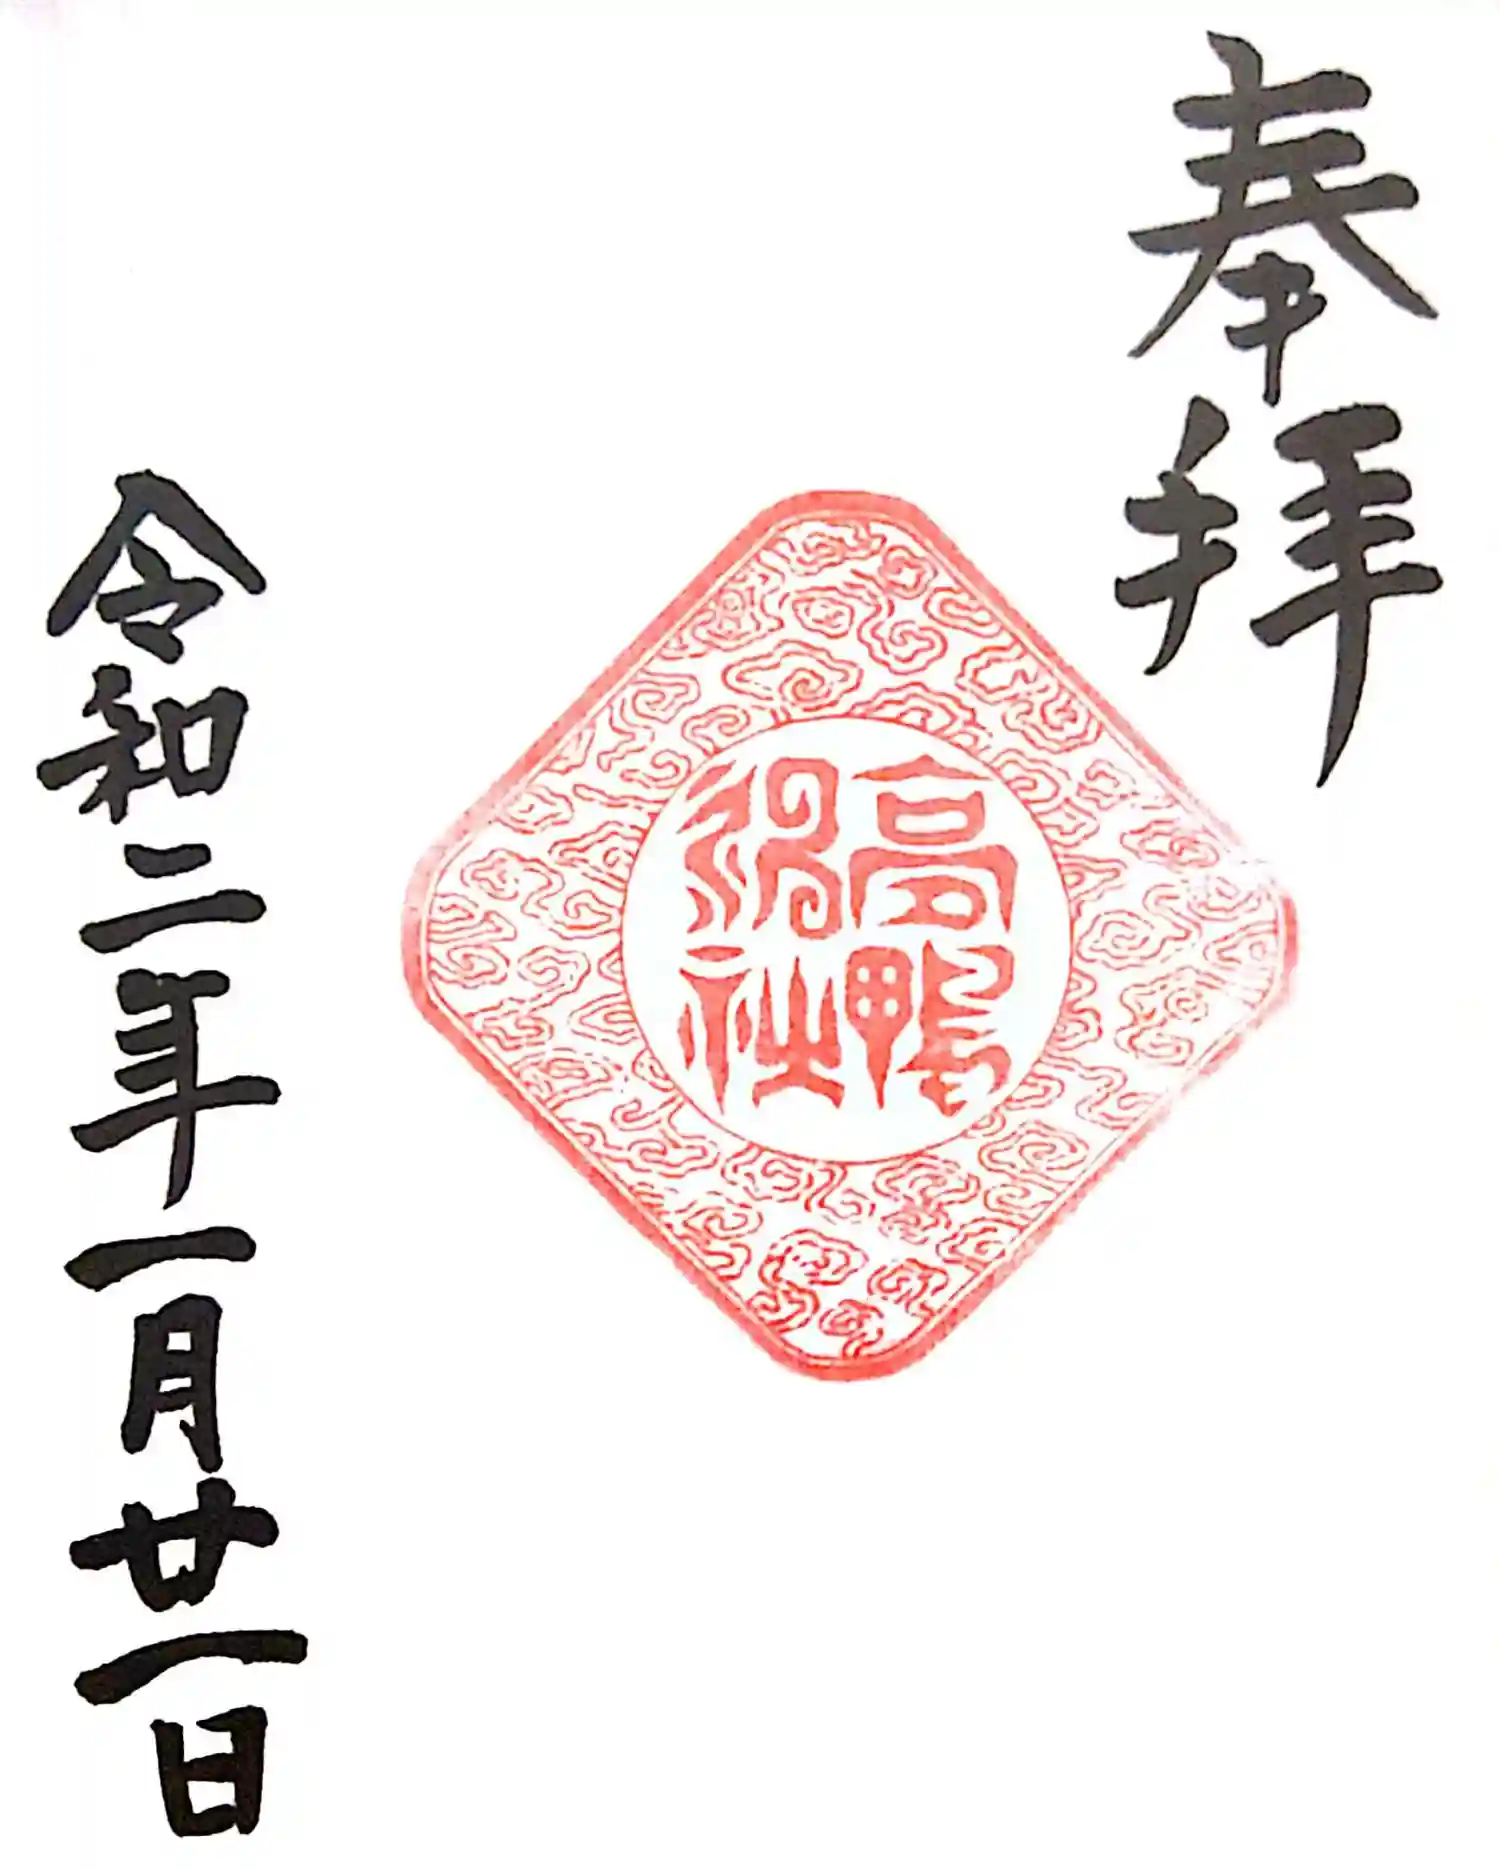 奉拝
高鴨
神社
令和二年一月廿一日